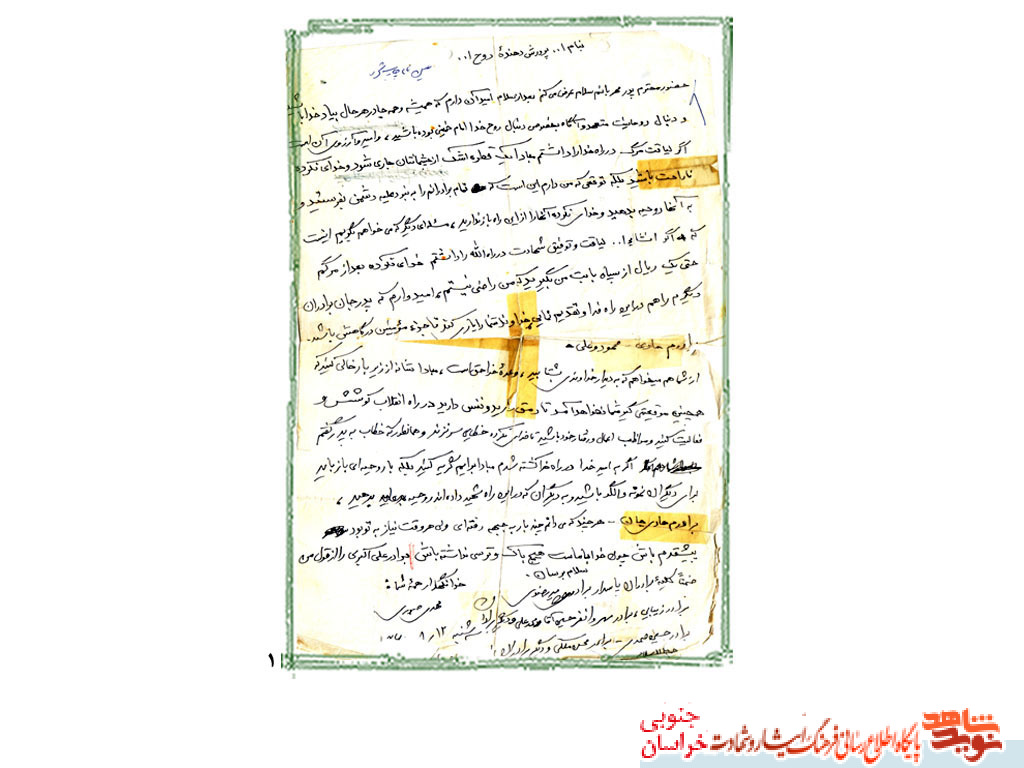 بنام ا... پرورش دهندهٔ روح ا...
حضور محترم پدر مهربانم سلام عرض می کنم بعد از سلام امیدوارم که همیشه و همه جا در هر حال بیاد خدا باشید
و دنبال روحانیت متعهد و آگاه بخصوص دنبال روح خدا امام خمینی بوده باشید، و امید و آرزوی آن است
اگر لیاقت مرگ در راه خدا را داشتم مبادا یک قطره اشک از چشمانتان جاری شود و خدای نکرده
ناراحت باشید بلکه توقعی که من دارم این است که تمام برادرانم را به نبرد علیه دشمن بفرستید و
به آنها روحیه بدهید و خدای نکرده آنها را از این راه باز ندارید، مسئله ای دیگر که می خواهم بگویم اینست
که اگر انشاء ا... لیاقت و توفیق شهادت در راه الله را داشتم خدای نکرده بعد از مرگم
حتی یک ریال از سپاه بابت من نگیرید که من راضی نیستم، امیدوارم که پدر جان برادران
دیگرم را هم در این راه فدا و تقدیم نمایی خداوند شما را یاری کند تا جزء مؤمنین درگاهش باشید.
برادرم هادی - محمود و علی
از شما هم میخواهم که به دیدار خداوندی بشتابید، وعدهٔ خدا حق است، مبادا شانه از زیر بار خالی کنید که
همچنین موقعیتی گیر شما نخواهد آمد تا رمق دارید و نفس دارید در راه انقلاب کوشش و
فعالیت کنید و مواظب اعمال و رفتار خود باشید تا خدای نکرده خطایی سر نزند و همانطور که خطاب به پدر گفتم
اگر به امید خدا در راه خدا کشته شدم مبادا برایم گریه کنید بلکه با روحیه ای باز باید
برای دیگران نمونه و الگو باشید و به دیگران که در این راه شهید داده اند روحیه بدهید،
برادرم هادی جان - هر چند که می دانم چند بار به جبهه رفته ای ولی هر وقت نیاز به تو بود
پیشقدم باش چون خدا با ماست هیچ باک و ترسی نداشته باش برادر علی اکبری را از قول من
سلام برسان.
ضمناً کلیهٔ برادران پاسدار برادر میر رضوی
خدانگهدار همهٔ شما
برادر زیبایی، برادر
مهدی صمدی
سه شنبه ۱۲/۸
برادر حسین صمدی - برادر و دیگر برادران
۱
نوید شاهد
پایگاه اطلاع رسانی فرهنگ ایثار و شهادت
خراسان جنوبی